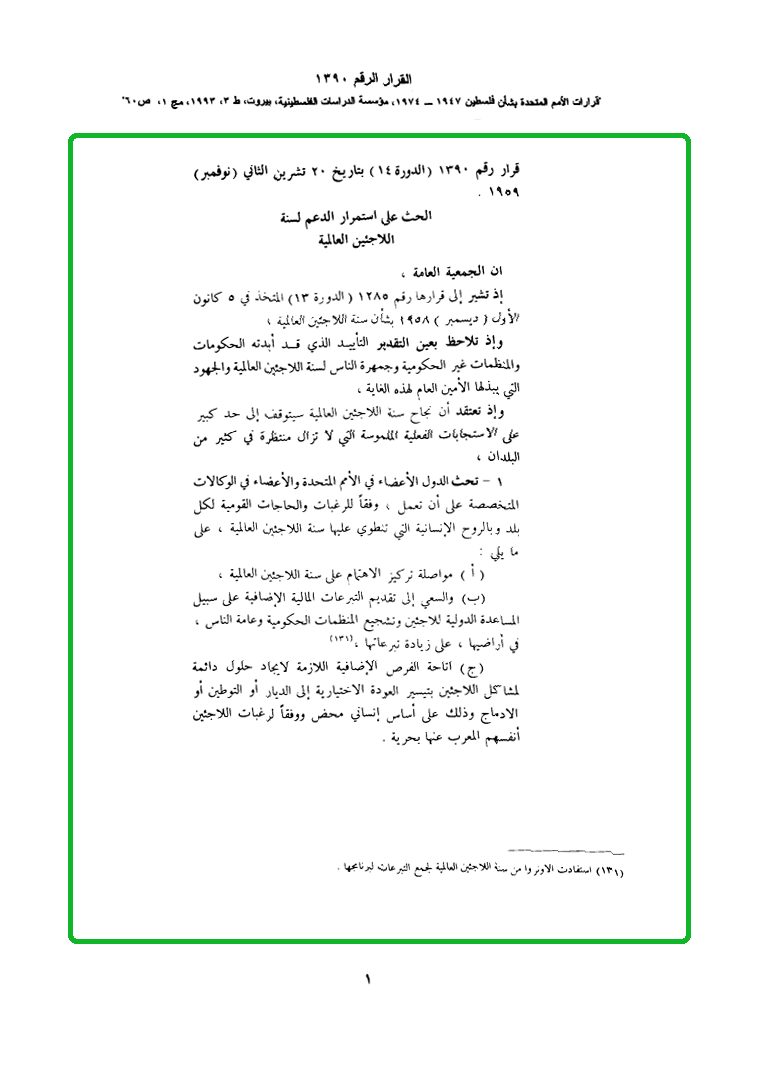 القرار الرقم ١٣٩٠
"قرارات الأمم المتحدة بشأن فلسطين ١٩٤٧ – ١٩٧٤، مؤسسة الدراسات الفلسطينية، بيروت، ط ٣، ١٩٩٣، مج ١، ص٦٠"
قرار رقم ١٣٩٠ (الدورة ١٤) بتاريخ ٢٠ تشرين الثاني (نوفمبر)
١٩٥٩ .
الحث على استمرار الدعم لسنة
اللاجئين العالمية
ان الجمعية العامة ،
إذ تشير إلى قرارها رقم ١٢٨٥ (الدورة ١٣) المتخذ في ٥ كانون
الأول (ديسمبر) ١٩٥٨ بشأن سنة اللاجئين العالمية ،
وإذ تلاحظ بعين التقدير التأييد الذي قد أبدته الحكومات
والمنظمات غير الحكومية وجمهرة الناس لسنة اللاجئين العالمية والجهود
التي يبذلها الأمين العام لهذه الغاية ،
وإذ تعتقد أن نجاح سنة اللاجئين العالمية سيتوقف إلى حد كبير
على الاستجابات الفعلية الملموسة التي لا تزال منتظرة في كثير من
البلدان ،
١ – تحث الدول الأعضاء في الأمم المتحدة والأعضاء في الوكالات
المتخصصة على أن تعمل ، وفقاً للرغبات والحاجات القومية لكل
بلد وبالروح الإنسانية التي تنطوي عليها سنة اللاجئين العالمية ، على
ما يلي :
(أ) مواصلة تركيز الاهتمام على سنة اللاجئين العالمية ،
(ب) والسعي إلى تقديم التبرعات المالية الإضافية على سبيل
المساعدة الدولية للاجئين وتشجيع المنظمات الحكومية وعامة الناس ،
في أراضيها ، على زيادة تبرعاتها ،(١٣١)
(ج) اتاحة الفرص الإضافية اللازمة لايجاد حلول دائمة
لمشاكل اللاجئين بتيسير العودة الاختيارية إلى الديار أو التوطين أو
الادماج وذلك على أساس إنساني محض ووفقاً لرغبات اللاجئين
أنفسهم المعرب عنها بحرية .
(١٣١) استفادت الاونروا من سنة اللاجئين العالمية لجمع التبرعات لبرنامجها .
١